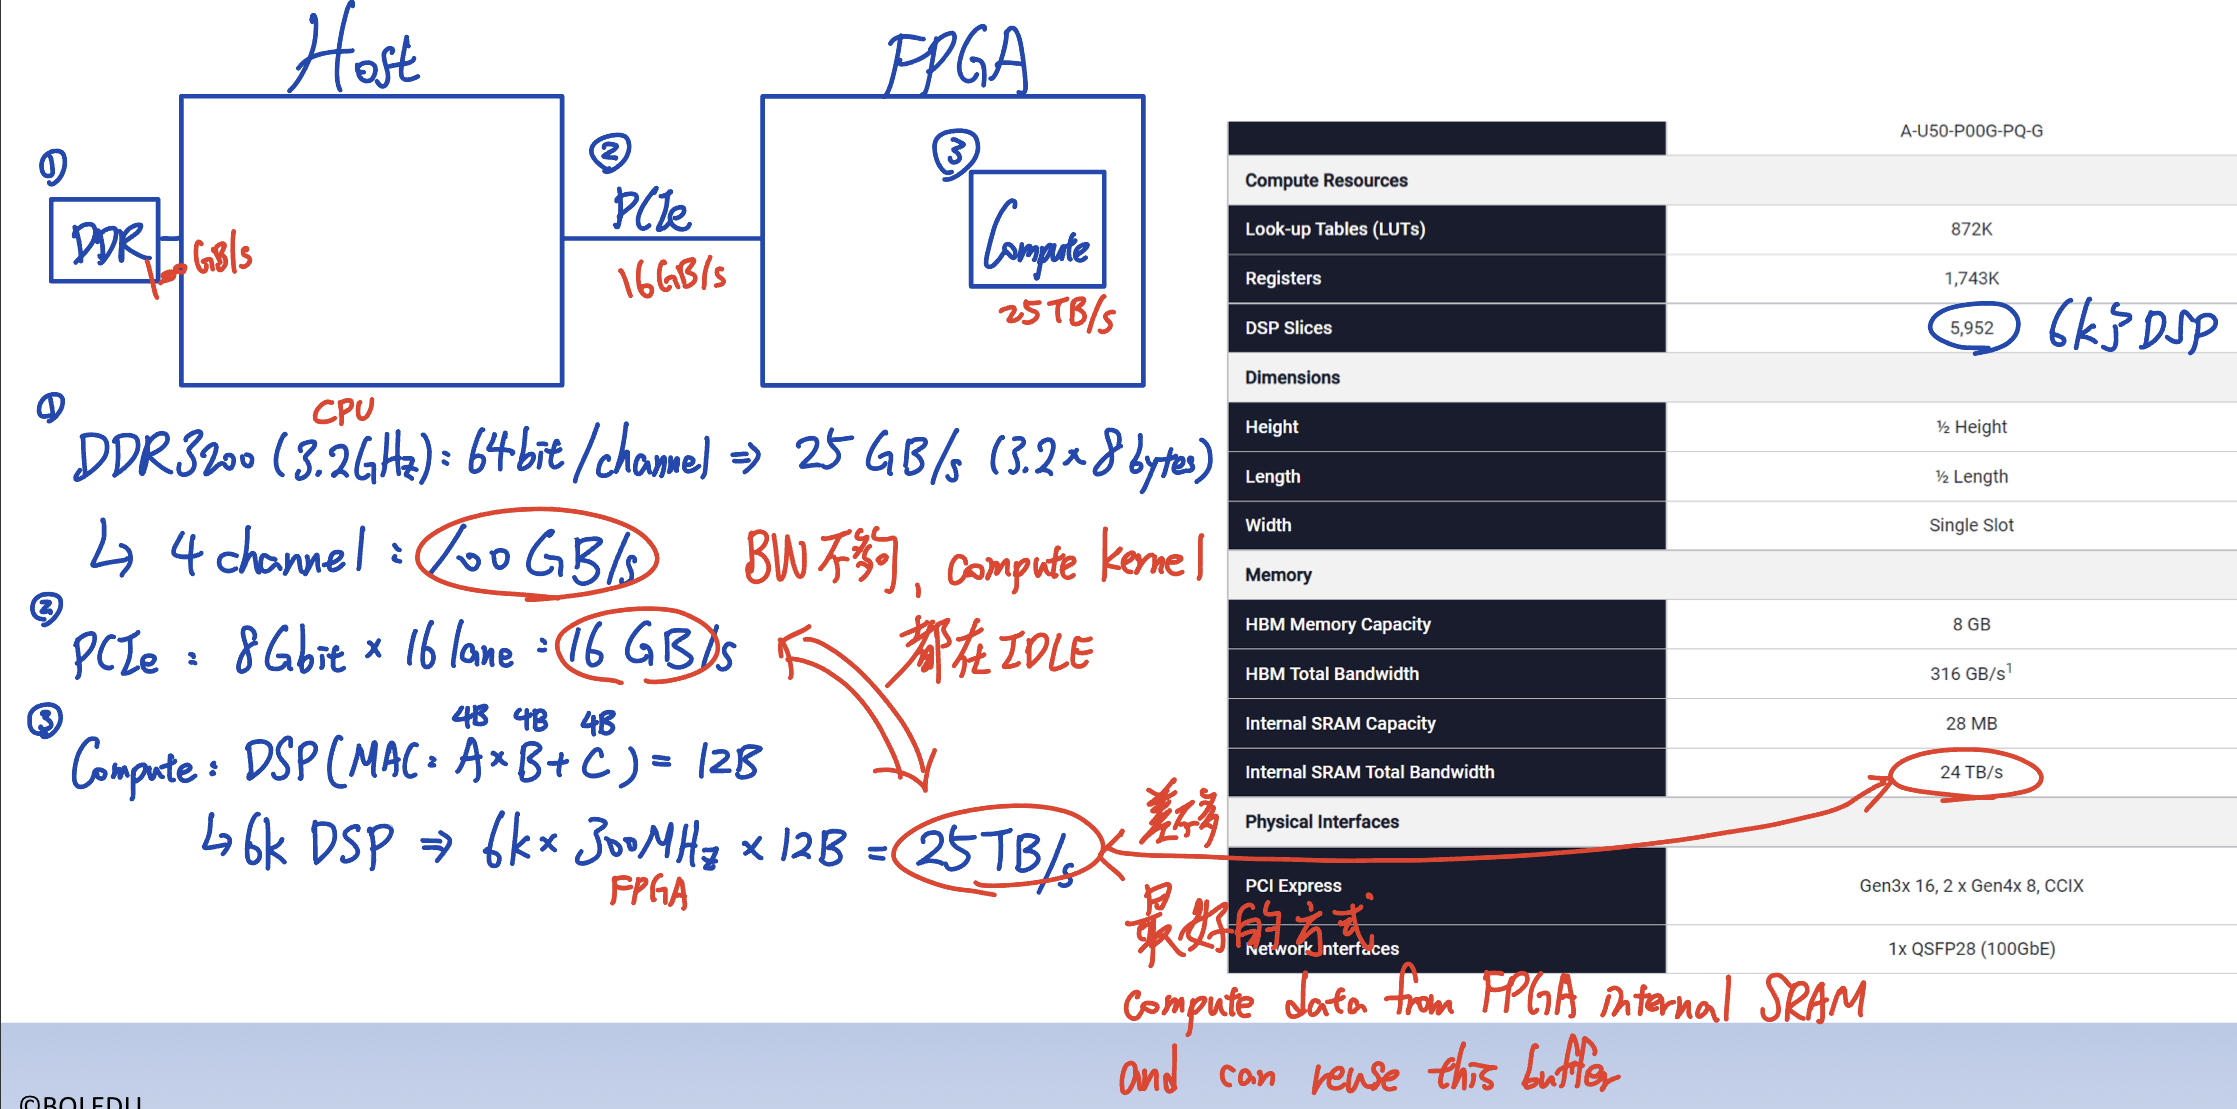 Host
FPGA
①
DDR
GB/s
②
PCIe
16GB/s
③
Compute
25TB/s
CPU
①
DDR3200 (3.2GHz): 64bit/channel ⇒ 25 GB/s (3.2 × 8 bytes)
↳ 4 channel : 100 GB/s
BW 不夠, compute kernel
都在 IDLE
②
PCIe : 8Gbit × 16 lane : 16 GB/s
③
4B 4B 4B
Compute : DSP (MAC: A × B + C) = 12B
↳ 6k DSP ⇒ 6k × 300MHz × 12B = 25TB/s
FPGA
差不多
最好的方式
compute data from FPGA internal SRAM
and can reuse this buffer
A-U50-P00G-PQ-G
Compute Resources
Look-up Tables (LUTs) 872K
Registers 1,743K
DSP Slices 5,952
6k DSP
Dimensions
Height ½ Height
Length ½ Length
Width Single Slot
Memory
HBM Memory Capacity 8 GB
HBM Total Bandwidth 316 GB/s¹
Internal SRAM Capacity 28 MB
Internal SRAM Total Bandwidth 24 TB/s
Physical Interfaces
PCI Express Gen3x 16, 2 x Gen4x 8, CCIX
Network Interfaces 1x QSFP28 (100GbE)
©BOLEDU